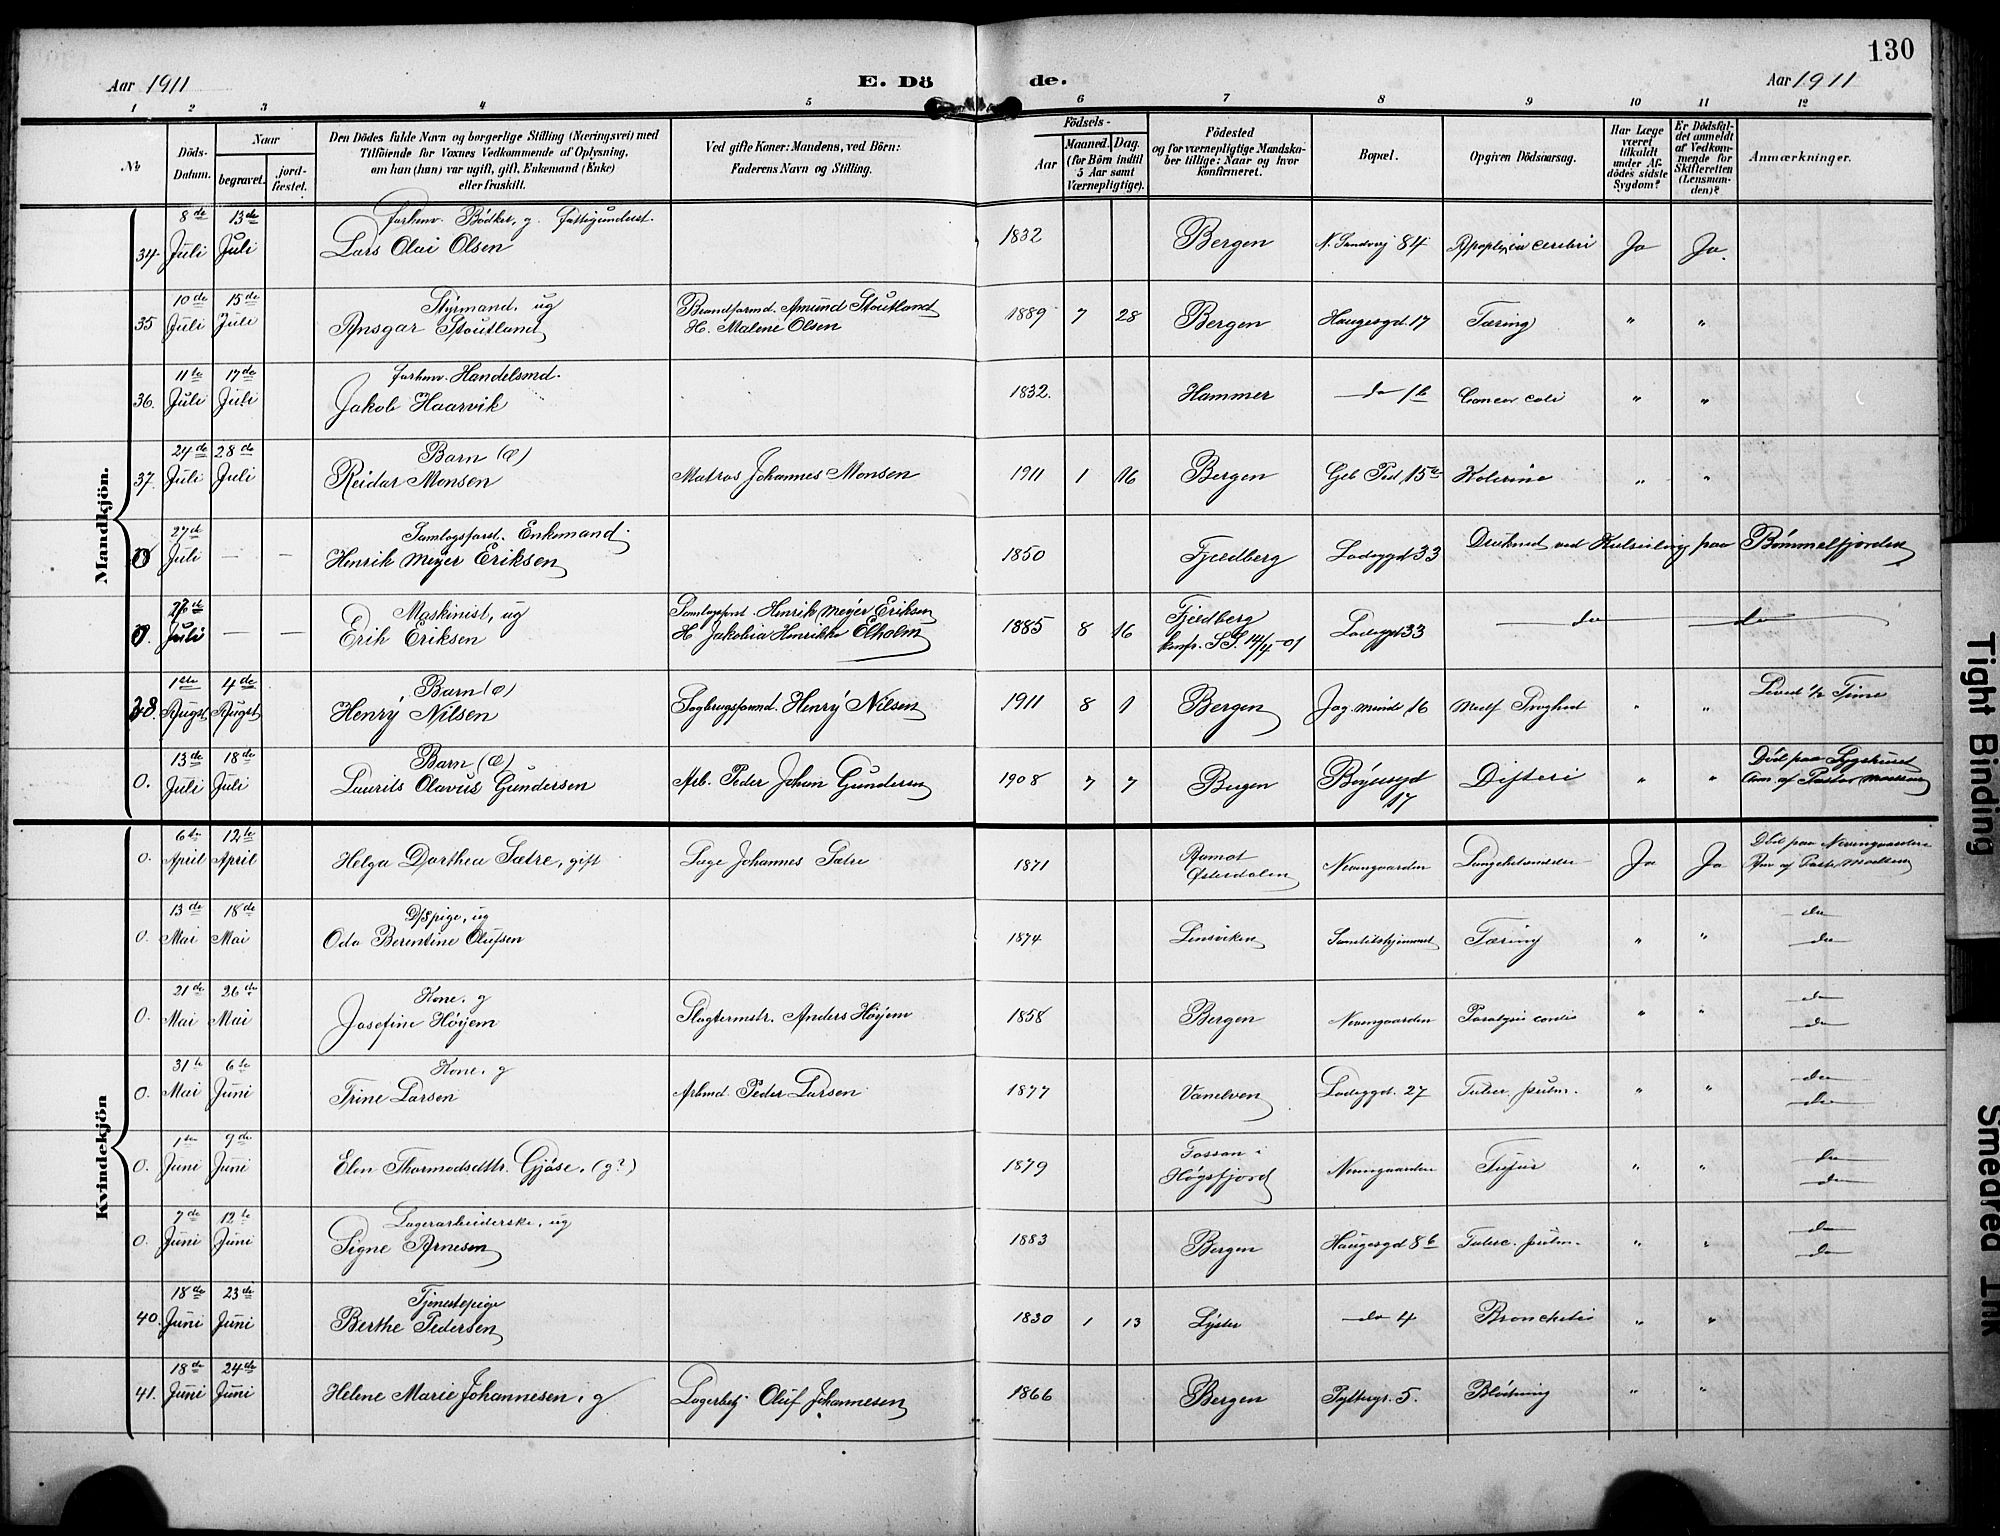 130
Aar 1911
E. Dö
de.
Aar 1911
1 2 3 4 5 6 7 8 9 10 11 12
№
Döds-Datum.
Naar
begravet.
jord-fæstet.
Den Dödes fulde Navn og borgerlige Stilling (Næringsvei) med
Tilföiende for Voxnes Vedkommende af Oplysning,
om han (hun) var ugift, gift, Enkemand (Enke)
eller fraskilt.
Ved gifte Koner: Mandens, ved Börn:
Faderens Navn og Stilling.
Födsels-
Aar
Maaned. Dag.
(for Börn indtil
5 Aar samt
Værnepligtige).
Födested
og for værnepligtige Mandska-
ber tillige: Naar og hvor
konfirmeret.
Bopæl.
Opgiven Dödsaarsag.
Har Læge
været
tilkaldt
under Af-
dödes sidste
Sygdom?
Er Dödsfal-
det anmeldt
af Vedkom-
mende for
Skifteretten
(Lensman-
den)?
Anmærkninger.
Mandkjön.
34. 8de Juli 13de Juli forhenv. Bödker, g. fattigunderst.
Lars Olai Olsen 1832 Bergen N. Sandvej 84 Apoplexia cerebri Ja Ja.
35 10de Juli 15de Juli Styrmand, ug
Ansgar Stoutland Brandformd. Amund Stoutland
H. Malene Olsen 1889 7 28 Bergen Haugesgd 17 Tæring " "
36. 11te Juli 17de Juli forhenv. Handelsmd.
Jakob Haarvik 1832. Hammer do 1b Cancer coli " "
37. 24de Juli 28de Juli Barn (æ)
Reidar Monsen Matros Johannes Monsen 1911 1 16 Bergen 15 Kolerine " "
0 27de Juli — — Enkemand.
Henrik Meyer Eriksen 1850 Fjeldberg Ladeggd 33 Druknet ved Kulseiling paa Bömmelfjorden
0. 27de Juli — — Maskinist, ug
Erik Eriksen Henrik Meyer Eriksen
H. Jakobia Henrikke Elholm 1885 8 16 Fjeldberg
konfr. 14/4-01 Ladeggd 33 do do
38. 1ste Augst 4de Augst Barn (æ)
Henry Nilsen Sagbrugsformd. Henry Nilsen 1911 8 1 Bergen Jag. minde 16 " " Leved ½ Time
0. 13de Juli 18de Juli Barn (æ)
Laurits Olavus Gundersen Arb. Peder Johan Gundersen 1908 7 7 Bergen 17 Difteri " " Död paa Sygehuset
Anm. af Pastor
Kvindekjön
0. 6te April 12te April Helga Dorthea Sætre, gift Læge Johannes Sætre 1871 Aamot
Østerdalen Nevengaarden Ja Ja Död paa Nevengaarden
Anm. af Pastor
0. 13de Mai 18de Mai D/spige, ug
Oda Berentine Olufsen 1874 Lensviken Tæring " " do
do
0. 21de Mai 26de Mai Kone, g
Josefine Höyem Slagtermstr. Anders Höyem 1858 Bergen Nevengaarden Paralysis cordis " " do
do
0. 31te Mai 6te Juni Kone, g
Trine Larsen Arbmd. Peder Larsen 1877 Vanelven Ladeggd. 27 Tuberc. pulm. " " do
do
0. 1ste Juni 9de Juni Elen Thormodsdttr. Gjöse, (g?) 1879 Fossan i
Høgsfjord Nevengaarden " " do
do
0. 7de Juni 12te Juni Lagerarbeiderske, ug
Signe Arnesen 1883 Bergen Haugesgd 8b Tuberc. pulm. " " do
do
40. 18de Juni 23de Juni Tjenestepige
Berthe Pedersen 1830 1 13 Lyster do 4 Bronchitis " "
41. 18de Juni 24de Juni Helene Marie Johannesen, g Lagerbetj. Oluf Johannesen 1866 Bergen 5. Blödning " "
Tight Binding
Smeared Ink